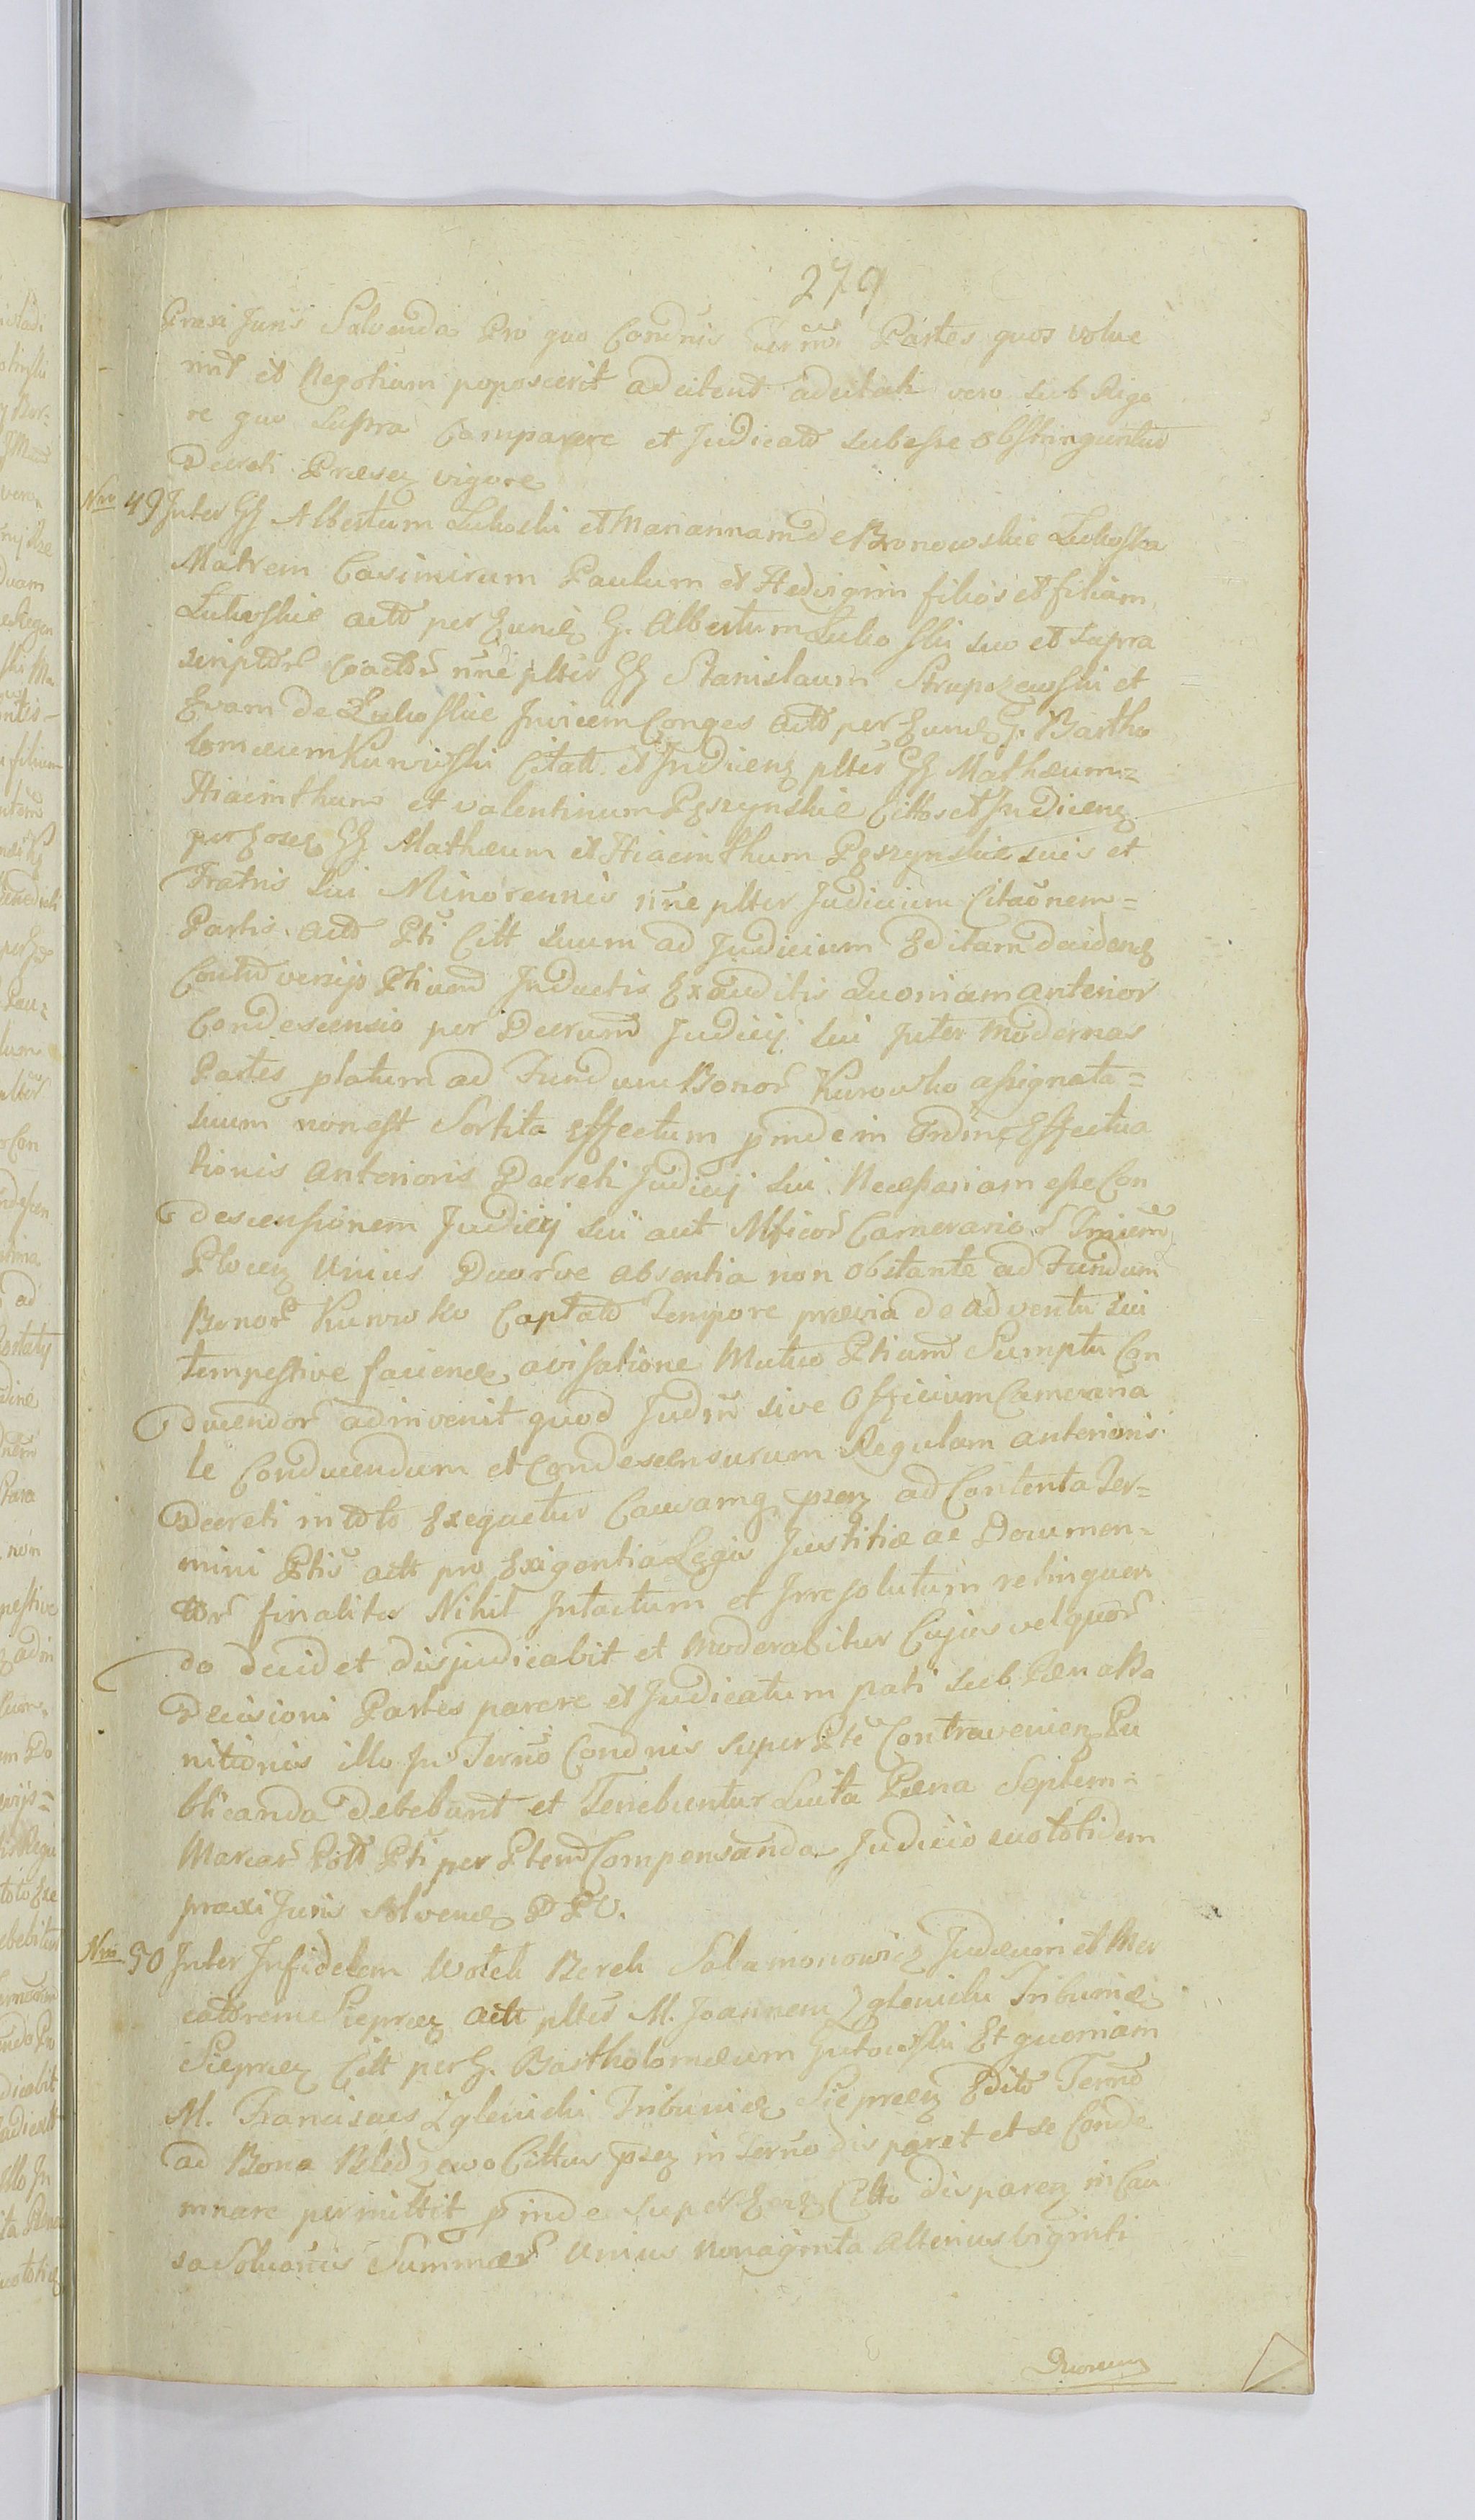 279
Praxi Juris Salvenda Pro quo Condnis Partes quos volue
rint et Negotium poposcerit adcitent adcitati vero sub Rigo
re quo supra Comparere et Judicato subesse obstringuntur
Decreti Præsenz vigore
Nro 49 Inter GG Albertum Lukoski et Mariannam de Bronowskie Lukoska
Matrem Casimirum Paulum et Hedvigim filios et filiam
Lukoskie act per G. Albertum Lukoski suo et supra
script nne plter GG Stanislaum Strupczewski et
Evam de Lukoskie Invicem Conges act per G. Bartho
lomæum Kurwski Citatt. et Indicenz plter GG Mathæum=
Hiacinthum et valentinum Pszynskie Cittos et Indicenz
per GG Mathæum et Hiacinthum Pszynskie suis et
Fratris sui Minorennis nne plter Judicium Citaonem=
Partis Act Pti Citt suum ad Judicium Editam
Ptium Inductis Exauditis Quoniam anterior
Condescensio per Decrum Judicij sui Inter modernas
Partes platum ad Fundum Bonor Kurowko assignata=
suum non est Sortita effectum pinde in Ordine Effectua
tionis anterioris Decreti Judicij sui Necessariam esse Con
descensionem Judicij sui aut Mficor Camerarior
Plocenz Unius Duorve absentia non obstante ad Fundum
Bonor Kurowko Captato Tempore prævia de adventu sui
tempestive faciend avisatione Mutuo Ptium Sumptu Con
ducendor adinvenit quod Judm sive Officium Camerana
le Conducendum et Condescensurum Regulam anterioris
Decreti in toto Exequetur Causamq przn ad Contenta Ter=
mini Ptis actt pro Exigentia Legis Justitiæ ac Documen=
tor finaliter Nihil Intactum et Irresolutum relinquen
do decidet disjudicabit et Moderabitur Cujus vel quor
Decisioni Partes parere et Judicatum pati sub Pæna
nitionis illo In Terno Condnis super Pte Contravenien Pu
blicanda debebunt et Tenebuntur Luita Pæna Septem=
Marcar Pti per Ptem Compensanda Judicio suo totidem
praxi Juris solvend D P V.
Nro 50 Inter Infidelem Berek Salamonowicz Judæum et Mer
catorem Sieprcz Actt plter M. Joannem Zglenicki Tribunid
Sieprcz Citt per G. Bartholomæum Et quoniam
M. Franciscus Zglenicki Tribunid Sieprcz Edito Terno
ad Bona Bledzewo Cittus przn in Terno dis paret et se Conde
mnare permittit pinde super Citto disparen in Cau
sa Soluonis Summar Unius Nonaginta Alterius Viginti
Duorum